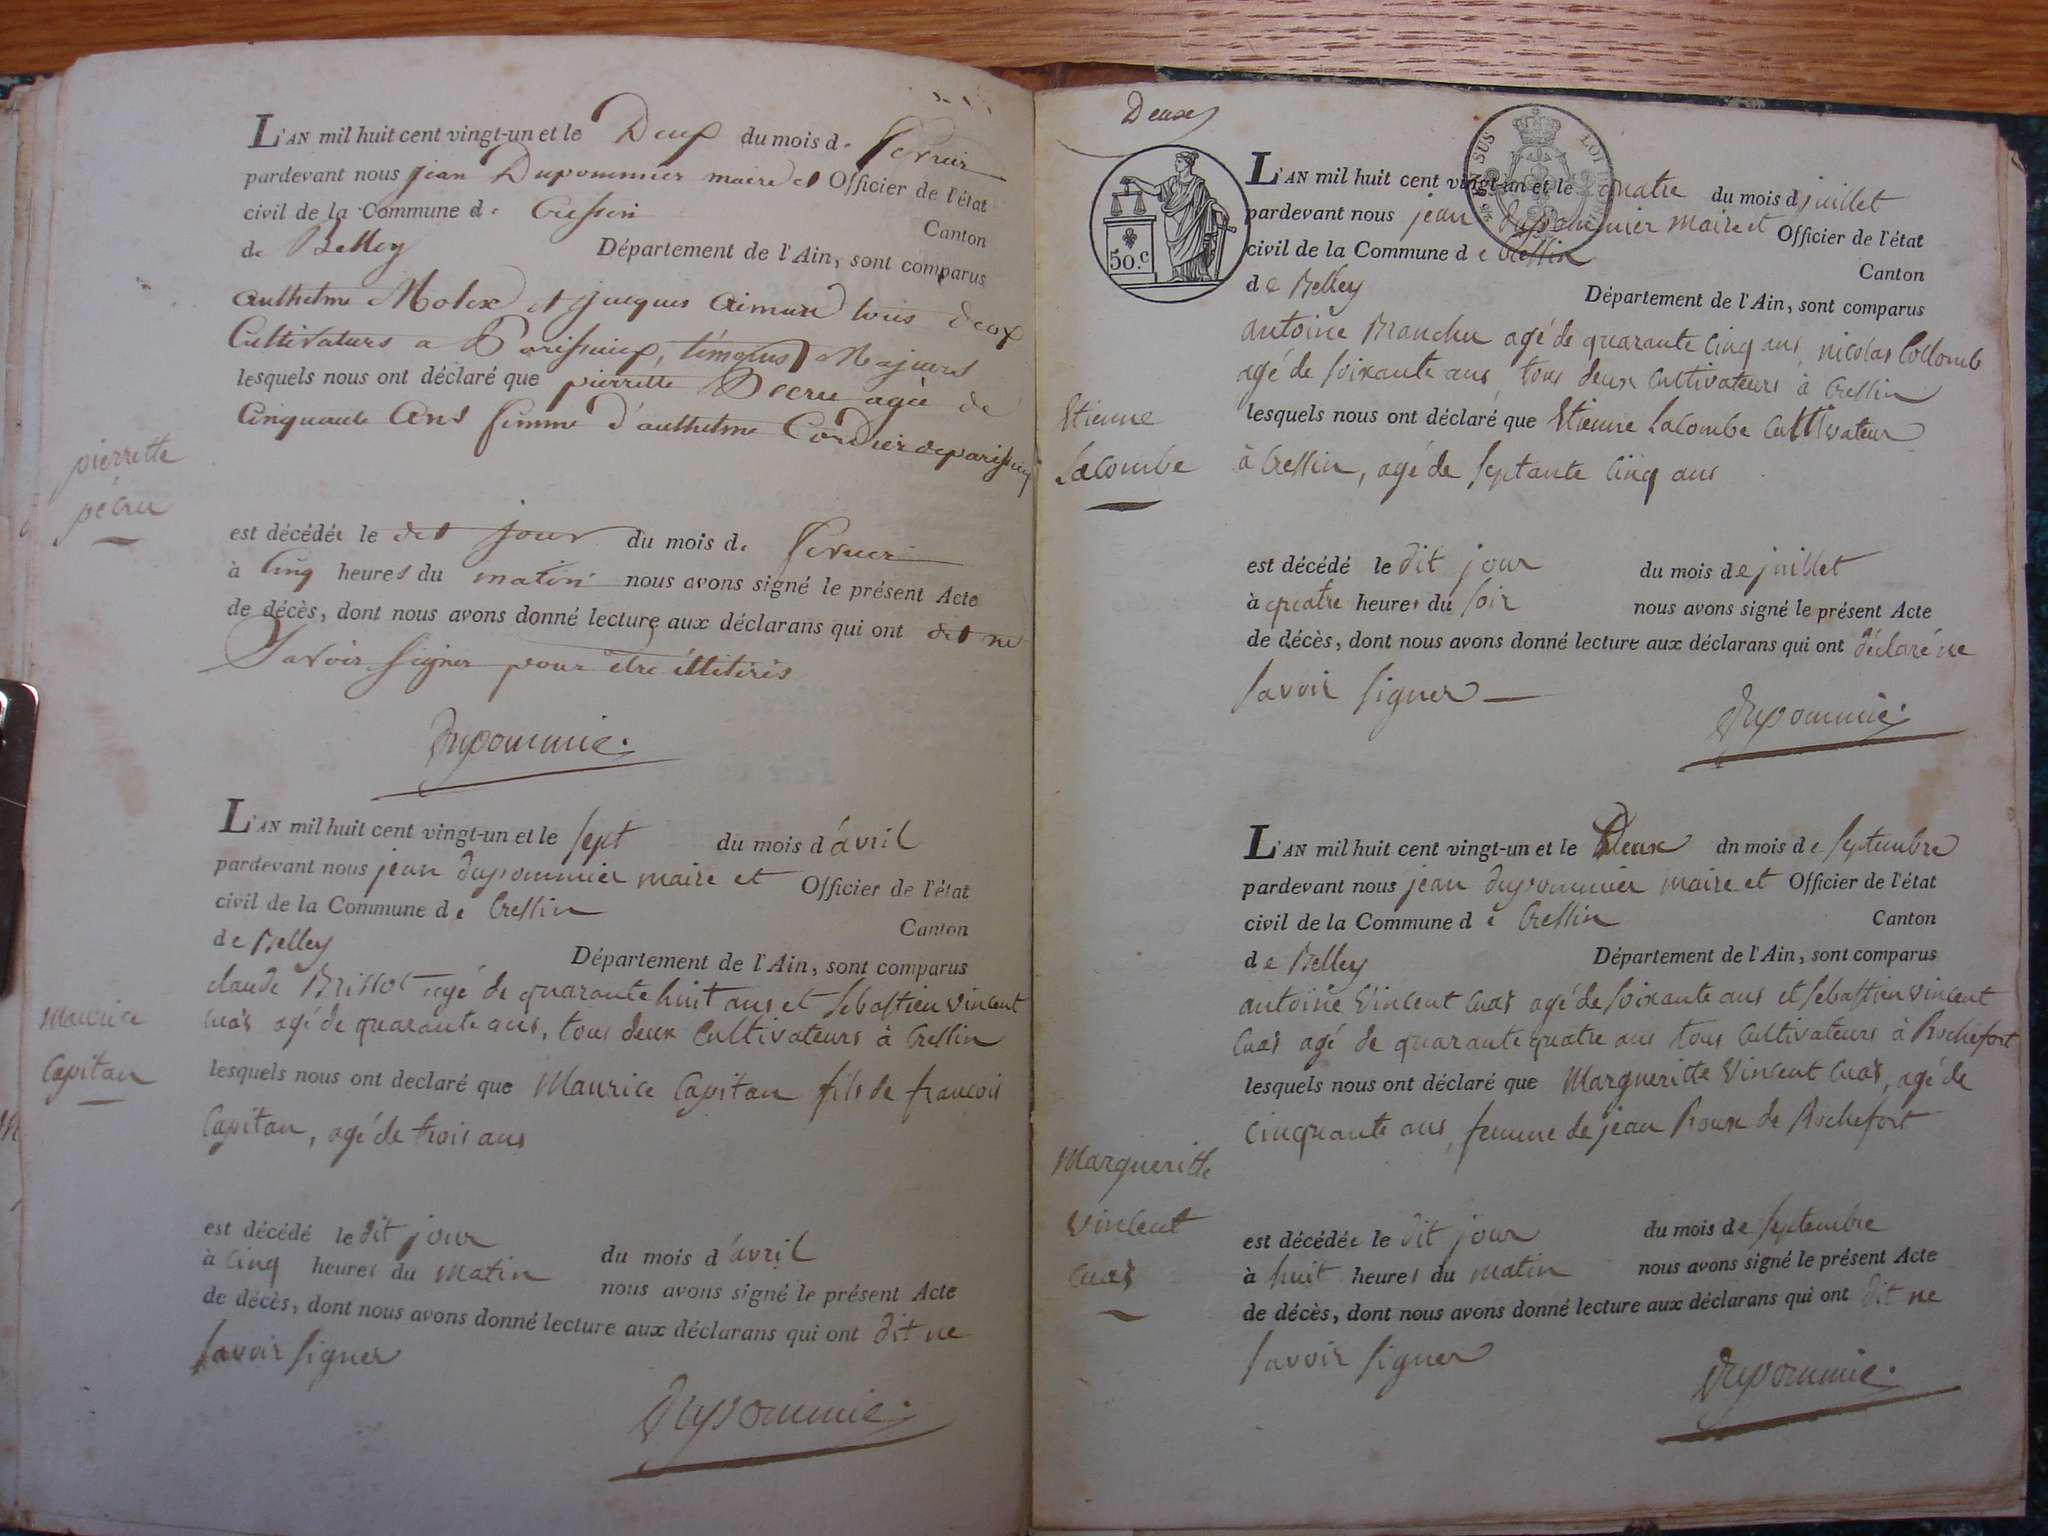 L'AN mil huit cent vingt-un et le Deux du mois de fevrier
pardevant nous jean Dupommier maire et Officier de l'état
civil de la Commune de Cressin
Canton
de Belley Département de l'Ain, sont comparus
anthelme Molex et jacques aimard tous deux
Cultivateurs a Parissieux, témoins Majeurs
lesquels nous ont déclaré que pierrette Decru agée de
Cinquante ans femme d'anthelme Cordier de parissieux
pierrette
pécru
est décédée le dit jour du mois de fevrier
à Cinq heures du matin nous avons signé le présent Acte
de décès, dont nous avons donné lecture aux déclarans qui ont dit ne
Savoir signer pour être illitérés
Dupommié.
L'AN mil huit cent vingt-un et le sept du mois d'avril
pardevant nous jean dupommier maire et Officier de l'état
civil de la Commune de Cressin
Canton
de Belley
Département de l'Ain, sont comparus
claude Brissot agé de quarante huit ans et sebastien vincent
cuas agé de quarante ans, tous deux cultivateurs à Cressin
lesquels nous ont declaré que Maurice Capitan fils de françois
Capitan, agé de trois ans
Maurice
Capitan
est décédé le dit jour du mois d'avril
à Cinq heures du matin nous avons signé le présent Acte
de décès, dont nous avons donné lecture aux déclarans qui ont dit ne
savoir signer
Dupommié.
Deuxe
50.c
EN SUS LOI
L'AN mil huit cent vingt-un et le quatre du mois d juillet
pardevant nous jean dupommier maire et Officier de l'état
civil de la Commune de Cressin
Canton
de Belley
Département de l'Ain, sont comparus
antoine Branchu agé de quarante cinq ans, nicolas Collomb
agé de soixante ans, tous deux cultivateurs à Cressin
lesquels nous ont déclaré que Etienne Lacombe cultivateur
à Cressin, agé de septante cinq ans
Etienne
Lacombe
est décédé le dit jour du mois de juillet
à quatre heures du soir nous avons signé le présent Acte
de décès, dont nous avons donné lecture aux déclarans qui ont déclaré ne
savoir signer
Dupommié.
L'AN mil huit cent vingt-un et le Deux dn mois de septembre
pardevant nous jean dupommier maire et Officier de l'état
civil de la Commune de Cressin Canton
de Belley Département de l'Ain, sont comparus
antoine Vincent cuas agé de soixante ans et sebastien vincent
cuas agé de quarante quatre ans tous cultivateurs à Rochefort
lesquels nous ont déclaré que Margueritte Vincent cuas, agé de
cinquante ans, femme de jean Roux de Rochefort
Margueritte
Vincent
cuas
est décédée le dit jour du mois de septembre
à huit heures du matin nous avons signé le présent Acte
de décès, dont nous avons donné lecture aux déclarans qui ont dit ne
savoir signer
Dupommié.